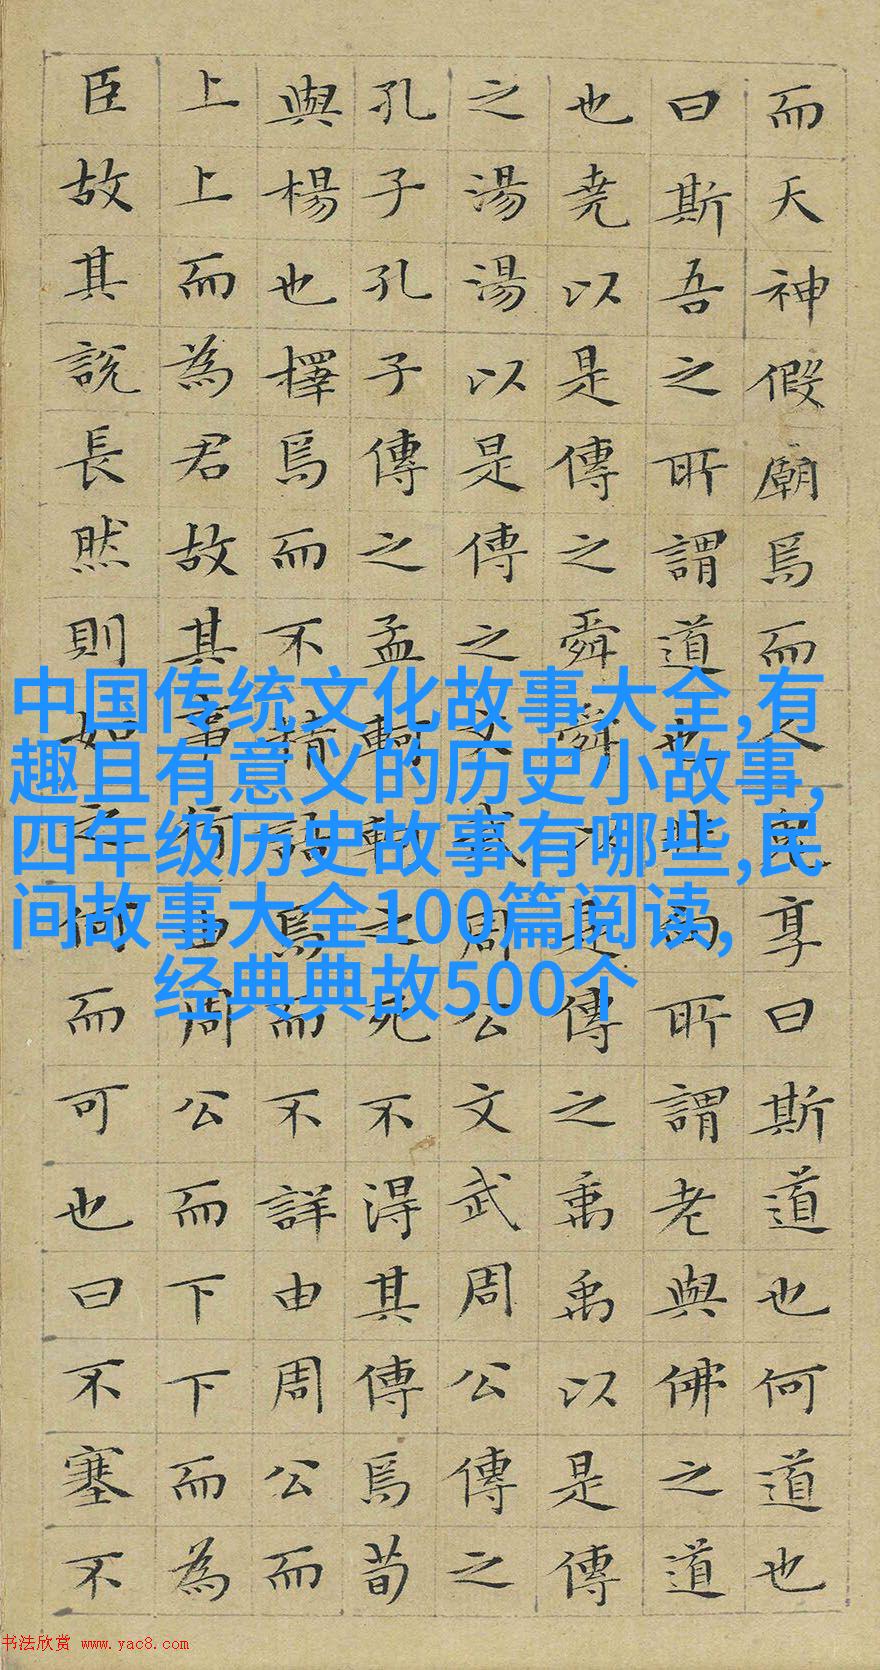 而天神假廟焉而人鬼享曰斯道也何道也
曰斯吾之所謂道也非向所謂老與佛之道
也堯以是傳之舜舜以是傳之禹禹以是傳
之湯湯以是傳之文武周公文武周公傳之
孔子孔子傳之孟軻軻之死不得其傳焉荀
與楊也擇焉而不精語焉而不詳由周公而
上上而為君故其事行由周公而下下而為
臣故其說長然則如之何而可也曰不塞不
中国传统文化故事大全,有
趣且有意义的历史小故事,
四年级历史故事有哪些,民
间故事大全100篇阅读,
经典典故500个
书法欣赏 www.yac8.com